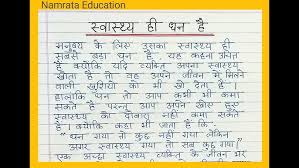 Namrata Education
स्वास्थ्य ही धन है
मनुष्य के लिए उसका स्वास्थ्य ही
सबसे बड़ा धन है। यह कहना उचित
है क्योंकि यदि व्यक्ति अपना स्वास्थ्य
खोता है तो वह अपने जीवन में मिलने
वाली खुशियों को भी खो देता है।
हालाँकि धन तो आप कभी भी कमा
सकते हैं परन्तु आप अपने खोए हुए
स्वास्थ्य को दोबारा नहीं कमा सकते
हैं। क्योंकि कहा भी जाता है कि-
"धन गया तो कुछ नहीं गया लेकिन
अगर स्वास्थ्य गया तो सब कुछ गया।"
एक अच्छा स्वास्थ्य व्यक्ति के जीवन भर